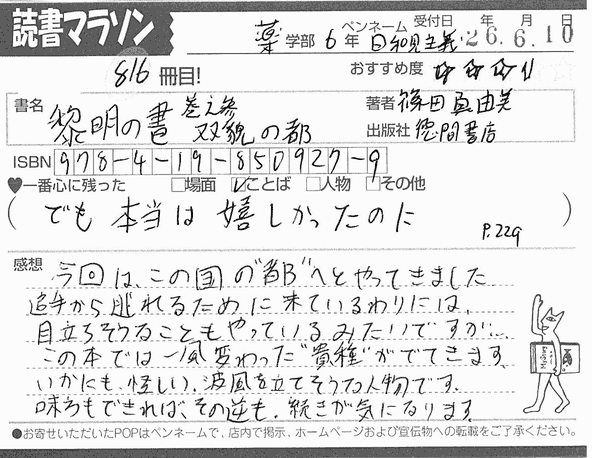 読書マラソン
薬学部 6年 ペンネーム 日和見主義 受付日 26年6月10日
816冊目!
おすすめ度 ☆☆☆
書名 黎明の書 巻之参 双貌の都
著者 篠田真由美
出版社 徳間書店
ISBN 978-4-19-850927-9
♥一番心に残った □場面 ☑ことば □人物 □その他
(でも 本当は 嬉しかったのに P.229)
感想
今回は、この国の"都"へとやってきました
追手から逃れるために来ているわりには、
目立ちそうなこともやっているみたいですが…
この本では一風変わった"貴種"がでてきます
いかにも怪しい、波風を立てそうな人物です。
味方もできれば、その逆も。続きが気になります
●お寄せいただいたPOPはペンネームで、店内で掲示、ホームページおよび宣伝物への転載をご了承ください。